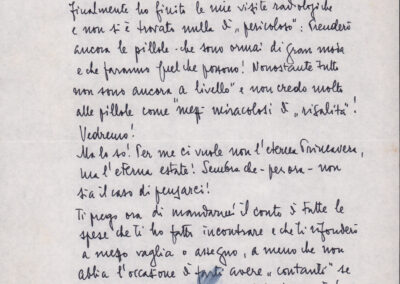 Finalmente ho finito le mie visite radiologiche
e non si è trovato nulla di "pericoloso": Prenderò
ancora le pillole - che sono ormai di gran moda
e che faranno quel che possono! Nonostante tutto
non sono ancora "a livello" e non credo molto
alle pillole come "mezzi miracolosi di "
Vedremo!
Ma lo so! Per me ci vuole non l'eterna Primavera,
ma l'eterna estate! Sembra che - per ora - non
sia il caso di pensarci!
Ti prego ora di mandarmi il conto di tutte le
spese che ti ho fatto incontrare e che ti rifonderò
a mezzo vaglia o assegno, a meno che non
abbia l'occasione di farti avere "contanti" se